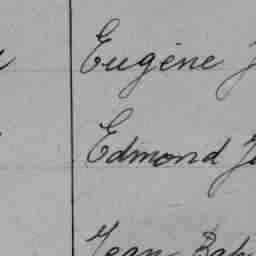 Eugène
Edmond
Jean-Bap